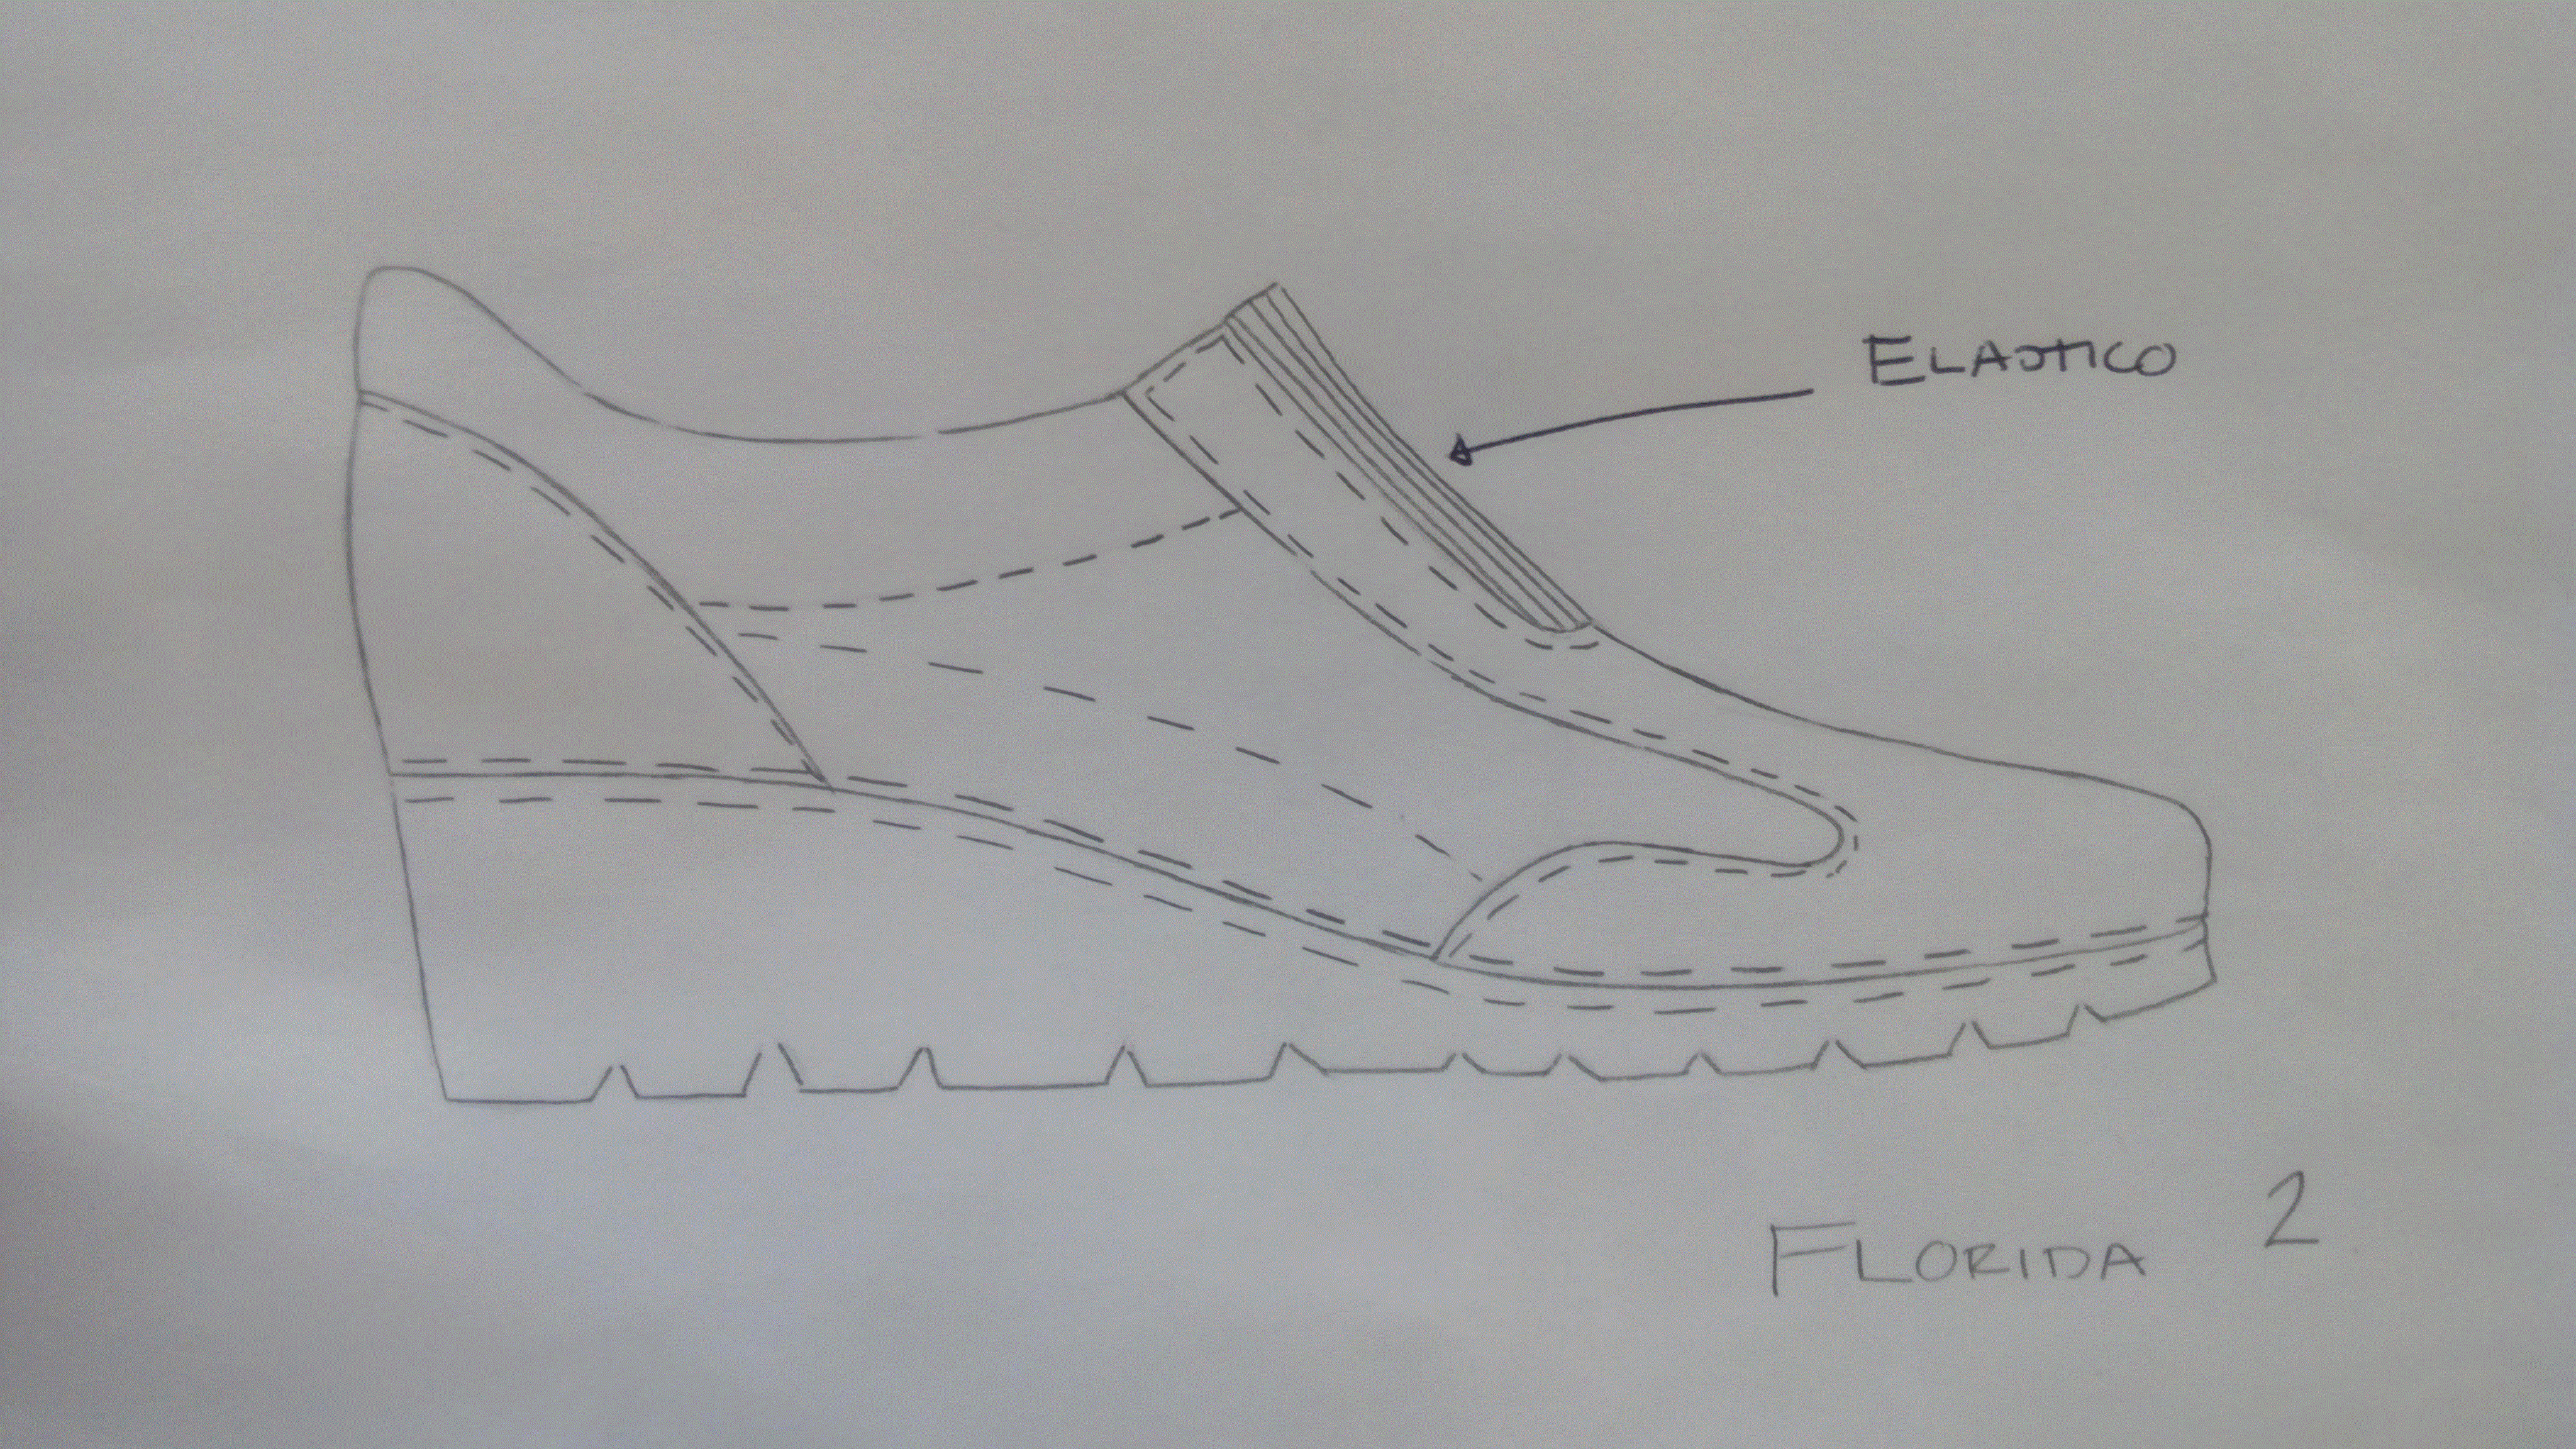 ELASTICO
FLORIDA 2